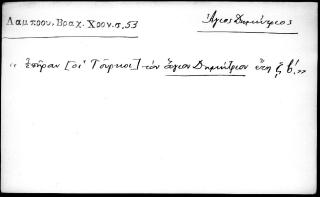 Λαμπρου, Βραχ. Χρον. σ. 53
Ἅγιος Δημήτριος
„ ἐπῆραν [οἱ Τοῦρκοι] τὸν ἅγιον Δημήτριον ἔτη ξβ΄. „